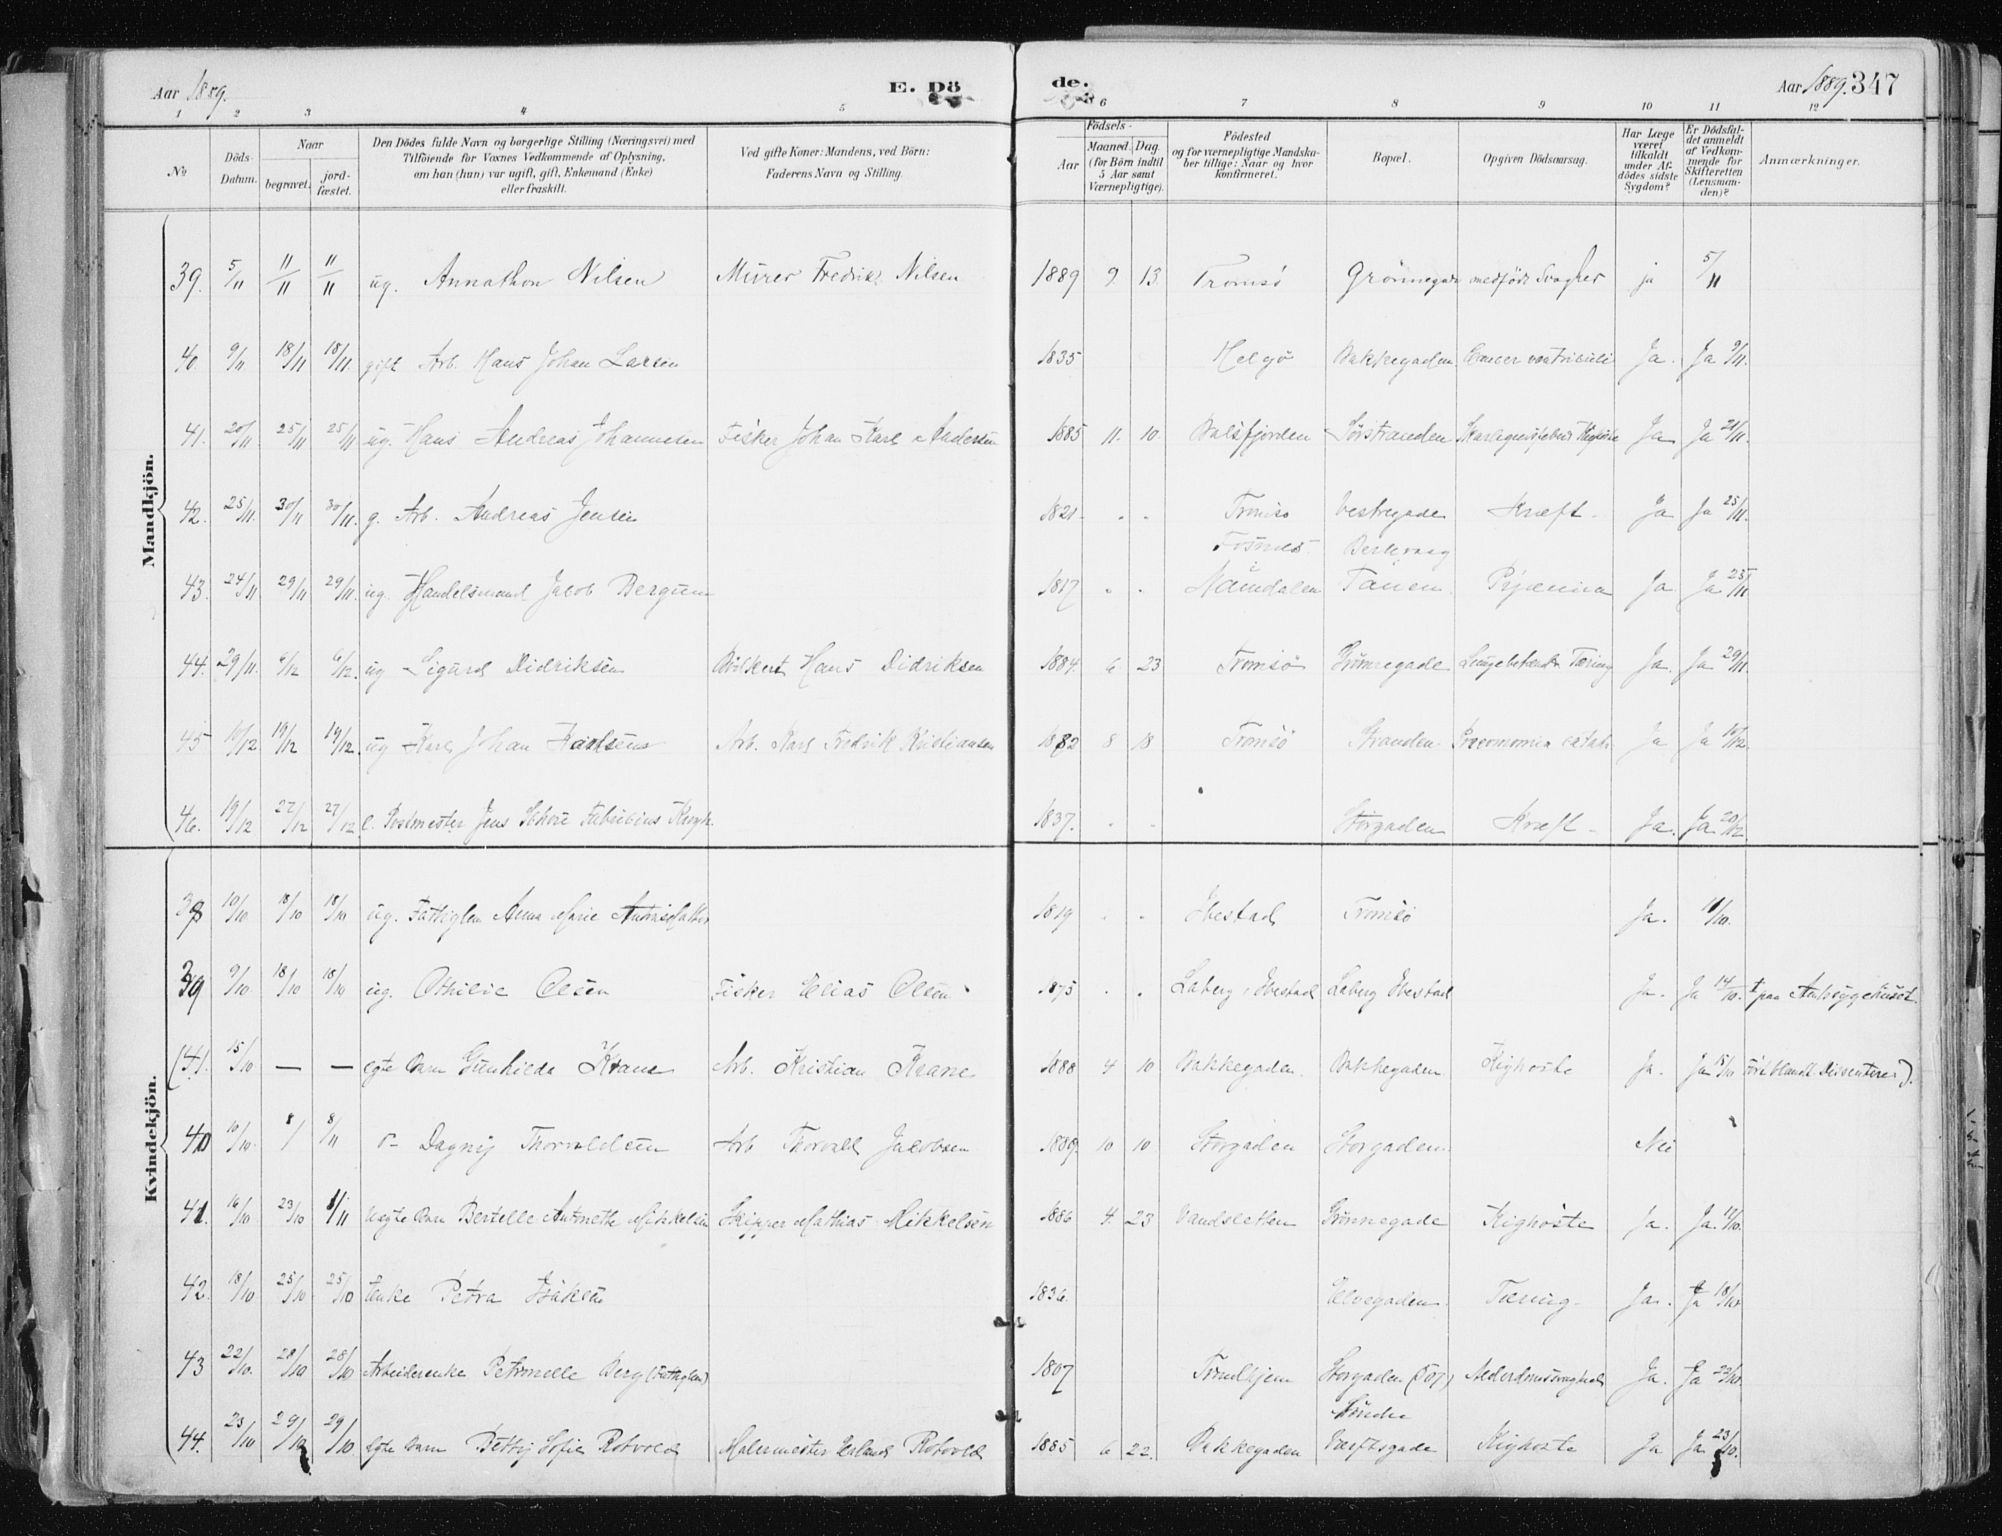 Aar 1889. E. Dö de. Aar 1889. 347
1 2 3 4 5 6 7 8 9 10 11 12
No
Döds-Datum.
Naar
begravet.
jord-fæstet.
Den Dödes fulde Navn og borgerlige Stilling (Næringsvei) med
Tilföiende for Voxnes Vedkommende af Oplysning,
om han (hun) var ugift, gift, Enkemand (Enke)
eller fraskilt.
Ved gifte Koner: Mandens, ved Börn:
Faderens Navn og Stilling.
Födsels-
Aar
Maaned. Dag.
(for Börn indtil
5 Aar samt
Værnepligtige).
Födested
og for værnepligtige Mandska-
ber tillige: Naar og hvor
konfirmeret.
Bopæl.
Opgiven Dödsaarsag.
Har Læge
været
tilkaldt
under Af-
dödes sidste
Sygdom?
Er Dödsfal-
det anmeldt
af Vedkom-
mende for
Skifteretten
(Lensman-
den)?
Anmærkninger.
Mandkjön.
39. 5/11 11/11 11/11 ug. Annathon Nilsen Murer Fredrik Nilsen 1889 9. 13. Tromsø Grønnegade medfødt Svaghed ja 5/11
40. 9/11 18/11 18/11. gift Arb. Hans Johan Larsen 1835 Helgø Bakkegaden Cancer ventriculi Ja. Ja 9/11.
41. 20/11 25/11 25/11 ug. Hans Andreas Johannesen Fisker Johan Karl Andersen 1885 11. 10. Balsfjorden Sørstranden Ja Ja 21/11.
42. 25/11. 30/11 30/11. g. Arb. Andreas Jensen 1821. Tromsø Vestregade Kræft. Ja Ja 25/11.
43. 24/11 29/11 29/11. ug. Handelsmand Jacob Bergum 1817 Fosnes Namdalen Tanen Pyæmia Ja Ja 25/11
44. 29/11. 6/12 6/12. ug Sigurd Didriksen Bødker Hans Didriksen 1884. 6 23 Tromsø Grønnegade Lungebetændelse Tæring Ja. Ja 29/11.
45 19/12 19/12. ug Karl Johan Karlsen Arb. Karl Fredrik Kristiansen 1882 8 18 Tromsø Stranden Pneumonia catarrh. Ja Ja
46. 19/12 27/12 27/12 e. Postmester Jens Fabricius 1837. Storgaden Kræft. Ja. Ja 20/12
Kvindekjön.
38 10/10 18/10 18/10 ug. Fattiglem Anna Marie 1819 Ibestad Tromsø Ja. 11/10.
39 9/10 18/10 18/10 ug. Othilie Olsen Fisker Elias Olsen 1875 Laberg, Ibestad Laberg Ibestad Ja. Ja 14/10. † paa Amtssygehuset.
(41. 15/10 — — egte Barn Gunhilda Krane Arb. Kristian Krane 1888 4 10 Bakkegaden. Bakkegaden Kighoste Ja. Ja 15/10 blandt Dissentere).
40 10/10. 8/ 8/11 Dagny Thorvaldsen Arb Thorvald Jacobsen 1889. 10 10 Storgaden Storgaden. Nei
41. 16/10 23/10 1/11 Uegte Barn Bertelle Antonette Mikkelsen Skipper Mathias Mikkelsen 1886 4. 23 Vandsletten Grønnegade Kighoste Ja. Ja.
42. 18/10 25/10 25/10 Enke Petra Isaksen 1836. Elvegaden. Tæring. Ja. Ja 18/10.
43 22/10. 28/10 28/10 Arbeiderenke Petronelle Berg (Fattiglem) 1807 Trondhjem Storgaden (Ø 07) Alderdomssvaghed Ja. Ja 22/10.
44. 23/10 29/10 29/10 egte Barn Betty Sofie Rotvold Malermester Erland Rotvold 1885 6 22. Bakkegaden Søndre Værftsgade Kighoste Ja Ja 23/10.